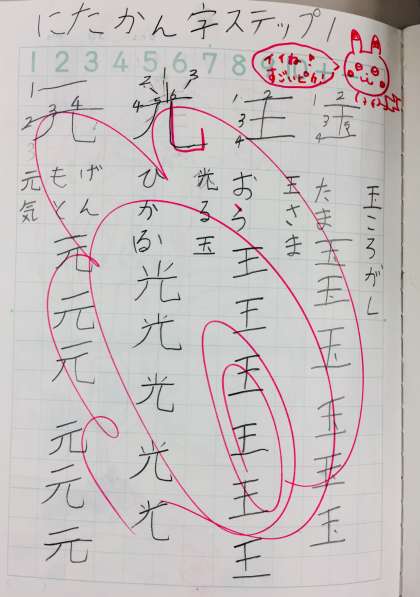 にたかん字ステップ1
イイね!
すごいピょ!
1 2 3 4 5 6 7 8 9
玉ころがし
玉
たま
玉 玉 玉 玉 玉 玉
王
王さま
おう
王 王 王 王 王 王
光
光る玉
ひかる
光 光 光 光 光
元
げん
もと
元気
元 元 元 元 元 元